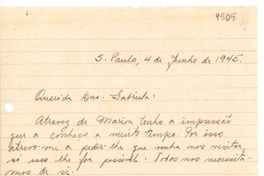 4305
S. Paulo, 4 de Junho de 1945.
Querida Dna. Gabriela:
Atravez de Marion tenho a impressão
que a conheço a muito tempo. Por isso
atrevo-me a pedir-lhe que venha nos visitar,
si isso lhe for possivel. Todos nos necessita-
mos de si.